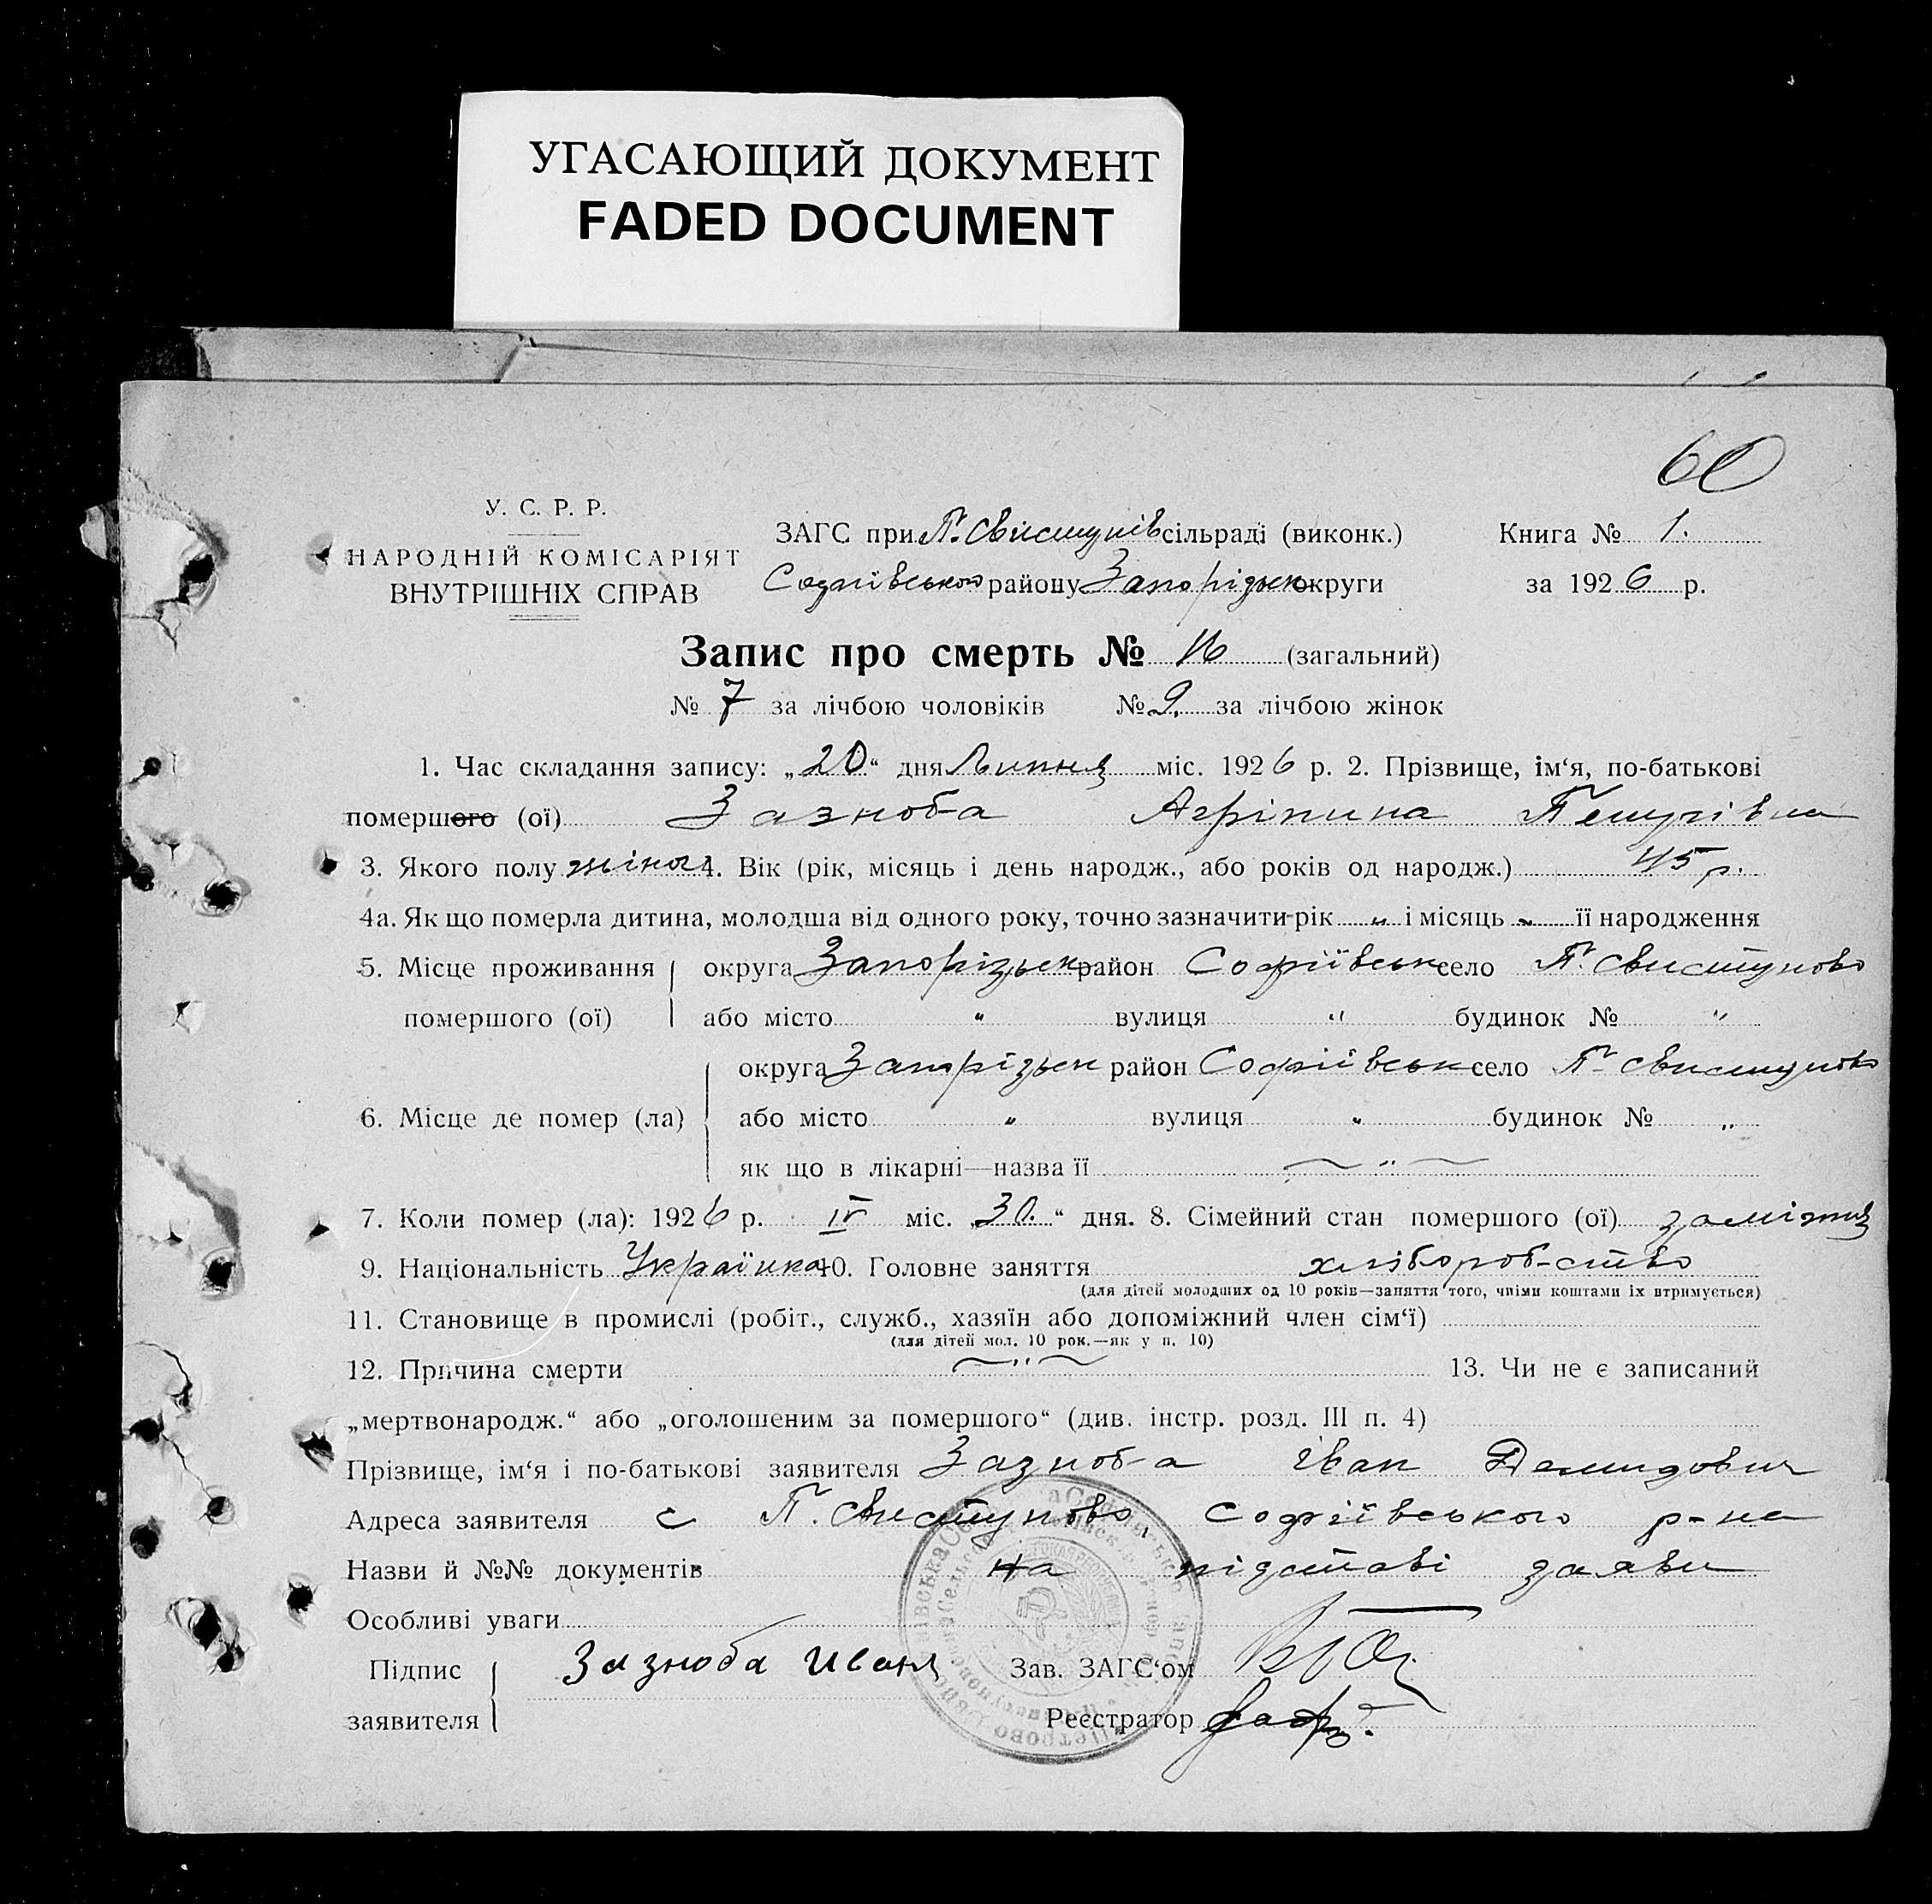 УГАСАЮЩИЙ ДОКУМЕНТ
FADED DOCUMENT
60
У. С. Р. Р.
НАРОДНІЙ КОМІСАРІЯТ
ВНУТРІШНІХ СПРАВ
ЗАГС при П. Свистунів сільраді (виконк.)
Софіївського району Запорізьк округи
Книга № 1.
за 1926 р.
Запис про смерть № 16 (загальний)
№ 7 за лічбою чоловіків № 9. за лічбою жінок
1. Час складання запису: „20“ дня Липня міс. 1926 р. 2. Прізвище, ім‘я, по-батькові
помершого (ої) Зазноба Агріпина
3. Якого полу жіноч 4. Вік (рік, місяць і день народж., або років од народж.) 45 р.
4а. Як що померла дитина, молодша від одного року, точно зазначити рік „ і місяць „ її народження
5. Місце проживання помершого (ої) округа Запорізьк район Софіївськ село П. Свистуново
або місто " вулиця " будинок № "
6. Місце де помер (ла) округа Запорізьк район Софіївськ село П. Свистуново
або місто " вулиця " будинок № "
як що в лікарні—назва її ~ " ~
7. Коли помер (ла): 1926 р. IV міс. „30.“ дня. 8. Сімейний стан помершого (ої) заміжня
9. Національність Українка 10. Головне заняття хліборобство
(для дітей молодших од 10 років—заняття того, чиїми коштами їх втримується)
11. Становище в промислі (робіт., служб., хазяїн або допоміжний член сім‘ї)
(для дітей мол. 10 рок.—як у п. 10)
12. Причина смерти ~ " ~ 13. Чи не є записаний
„мертвонародж.“ або „оголошеним за помершого“ (див. інстр. розд. III п. 4)
Прізвище, ім‘я і по-батькові заявителя Зазноба Іван Демидович
Адреса заявителя с П. Свистуново, Софіївського р-на
Назви й №№ документів на підставі заяви
Особливі уваги
Підпис заявителя Зазноба Иван Зав. ЗАГС‘ом
Реєстратор